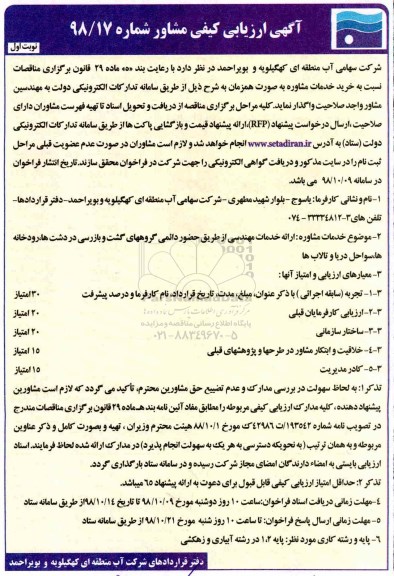 آگهی ارزیابی کیفی مشاور شماره ۹۸/۱۷
نوبت اول
شرکت سهامی آب منطقه ای کهگیلویه و بویراحمد در نظر دارد با رعایت بند «ه» ماده ۲۹ قانون برگزاری مناقصات
نسبت به خرید خدمات مشاوره به صورت همزمان به شرح ذیل از طریق سامانه تدارکات الکترونیکی دولت به مهندسین
مشاور واجد صلاحیت واگذار نماید. کلیه مراحل برگزاری مناقصه از دریافت و تحویل اسناد تا تهیه فهرست مشاوران دارای
صلاحیت، ارسال درخواست پیشنهاد (RFP)، ارائه پیشنهاد قیمت و بازگشایی پاکت ها از طریق سامانه تدارکات الکترونیکی
دولت (ستاد) به آدرس www.setadiran.ir انجام خواهد شد و لازم است مشاوران در صورت عدم عضویت قبلی مراحل
ثبت نام را در سایت مذکور و دریافت گواهی الکترونیکی را جهت شرکت در فراخوان محقق سازند. تاریخ انتشار فراخوان
در سامانه ۹۸/۱۰/۰۹ می باشد.
۱- نام و نشانی کارفرما: یاسوج - بلوار شهید مطهری - شرکت سهامی آب منطقه ای کهگیلویه و بویراحمد - دفتر قراردادها -
تلفن های ۳-۳۳۳۳۴۸۱۲-۰۷۴
۲- موضوع خدمات مشاوره: ارائه خدمات مهندسی از طریق حضور دائمی گروههای گشت و بازرسی در دشت ها، رودخانه
ها، سواحل دریا و تالاب ها
۳- معیارهای ارزیابی و امتیاز آنها:
۳-۱- تجربه (سابقه اجرائی) با ذکر عنوان، مبلغ، مدت، تاریخ قرارداد، نام کارفرما و درصد پیشرفت ۳۰ امتیاز
۳-۲- ارزیابی کارفرمایان قبلی ۲۰ امتیاز
۳-۳- ساختار سازمانی ۲۰ امتیاز
۳-۴- خلاقیت و ابتکار مشاور در طرحها و پژوهشهای قبلی ۱۵ امتیاز
۳-۵- کادر مدیریت ۱۵ امتیاز
پایگاه اطلاع رسانی مناقصه و مزایده
۰۲۱-۸۸۳۴۹۶۷۰-۵
تذکر۱: به لحاظ سهولت در بررسی مدارک و عدم تضییع حق مشاورین محترم، تأکید می گردد که لازم است مشاورین
پیشنهاد دهنده، کلیه مدارک ارزیابی کیفی مربوطه را مطابق مفاد آئین نامه بند هـ ماده ۲۹ قانون برگزاری مناقصات مندرج
در تصویب نامه شماره ۱۹۳۵۴۲/ت۴۲۹۸۶ک مورخ ۸۸/۱۰/۱ هیئت محترم وزیران، تهیه و بصورت کامل و ذکر عناوین
مربوطه و به همان ترتیب (به نحویکه دسترسی به هر یک به سهولت انجام پذیرد) در مدارک ارائه شده لحاظ فرمایند. اسناد
ارزیابی بایستی به امضاء دارندگان امضای مجاز شرکت رسیده و در سامانه ستاد بارگذاری گردد.
تذکر ۲: حداقل امتیاز ارزیابی کیفی قابل قبول برای دعوت به ارائه پیشنهاد ۶۵ میباشد.
۴- مهلت زمانی دریافت اسناد فراخوان: ساعت ۱۰ روز دوشنبه مورخ ۹۸/۱۰/۰۹ تا تاریخ ۹۸/۱۰/۱۴ از طریق سامانه ستاد
۵- مهلت زمانی ارسال پاسخ فراخوان: تا ساعت ۱۰ روز شنبه مورخ ۹۸/۱۰/۲۱ از طریق سامانه ستاد
۶- پایه و رشته کاری مورد نظر: پایه ۱،۲ در رشته آبیاری و زهکشی
دفتر قراردادهای شرکت آب منطقه ای کهگیلویه و بویراحمد